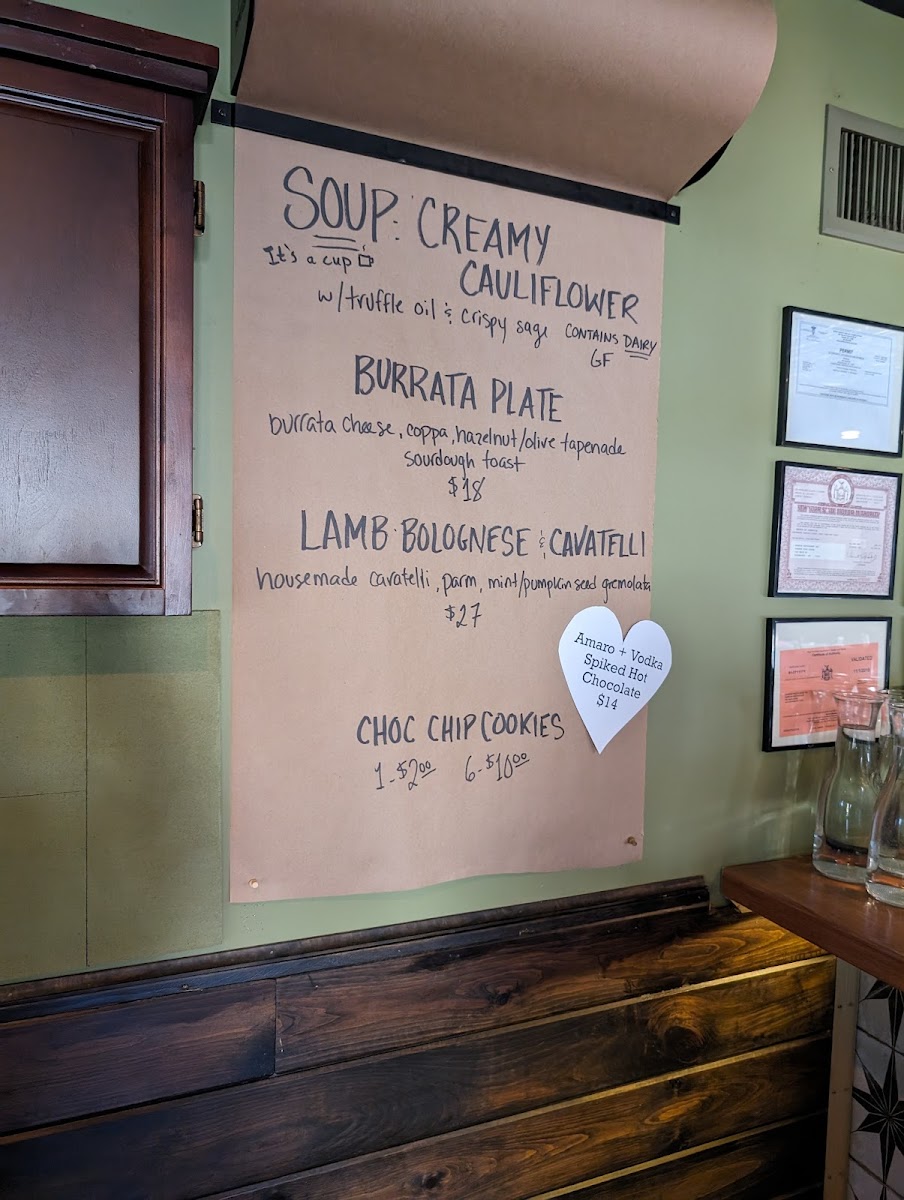 SOUP: CREAMY
CAULIFLOWER
It's a cup
w/truffle oil & crispy sage CONTAINS DAIRY
GF
BURRATA PLATE
burrata cheese, coppa, hazelnut/olive tapenade
sourdough toast
$18
LAMB BOLOGNESE & CAVATELLI
housemade cavatelli, parm, mint/pumpkin seed gremolata
$27
Amaro + Vodka
Spiked Hot
Chocolate
$14
CHOC CHIP COOKIES
1-$2.00 6-$10.00